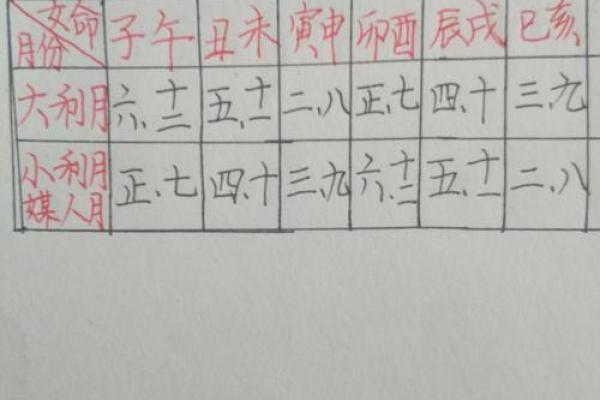 女命 月份 子午 丑未 寅申 卯酉 辰戌 巳亥
大利月 六、十二 五、十一 二、八 正、七 四、十 三、九
小利月 媒人月 正、七 四、十 三、九 六、十二 五、十一 二、八